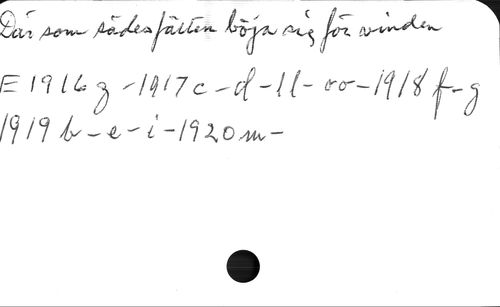 Där som sädesfälten böja sig för vinden
E 1916 g - 1917 c - d - ll - oo - 1918 f - g
1919 b - e - i - 1920 m -